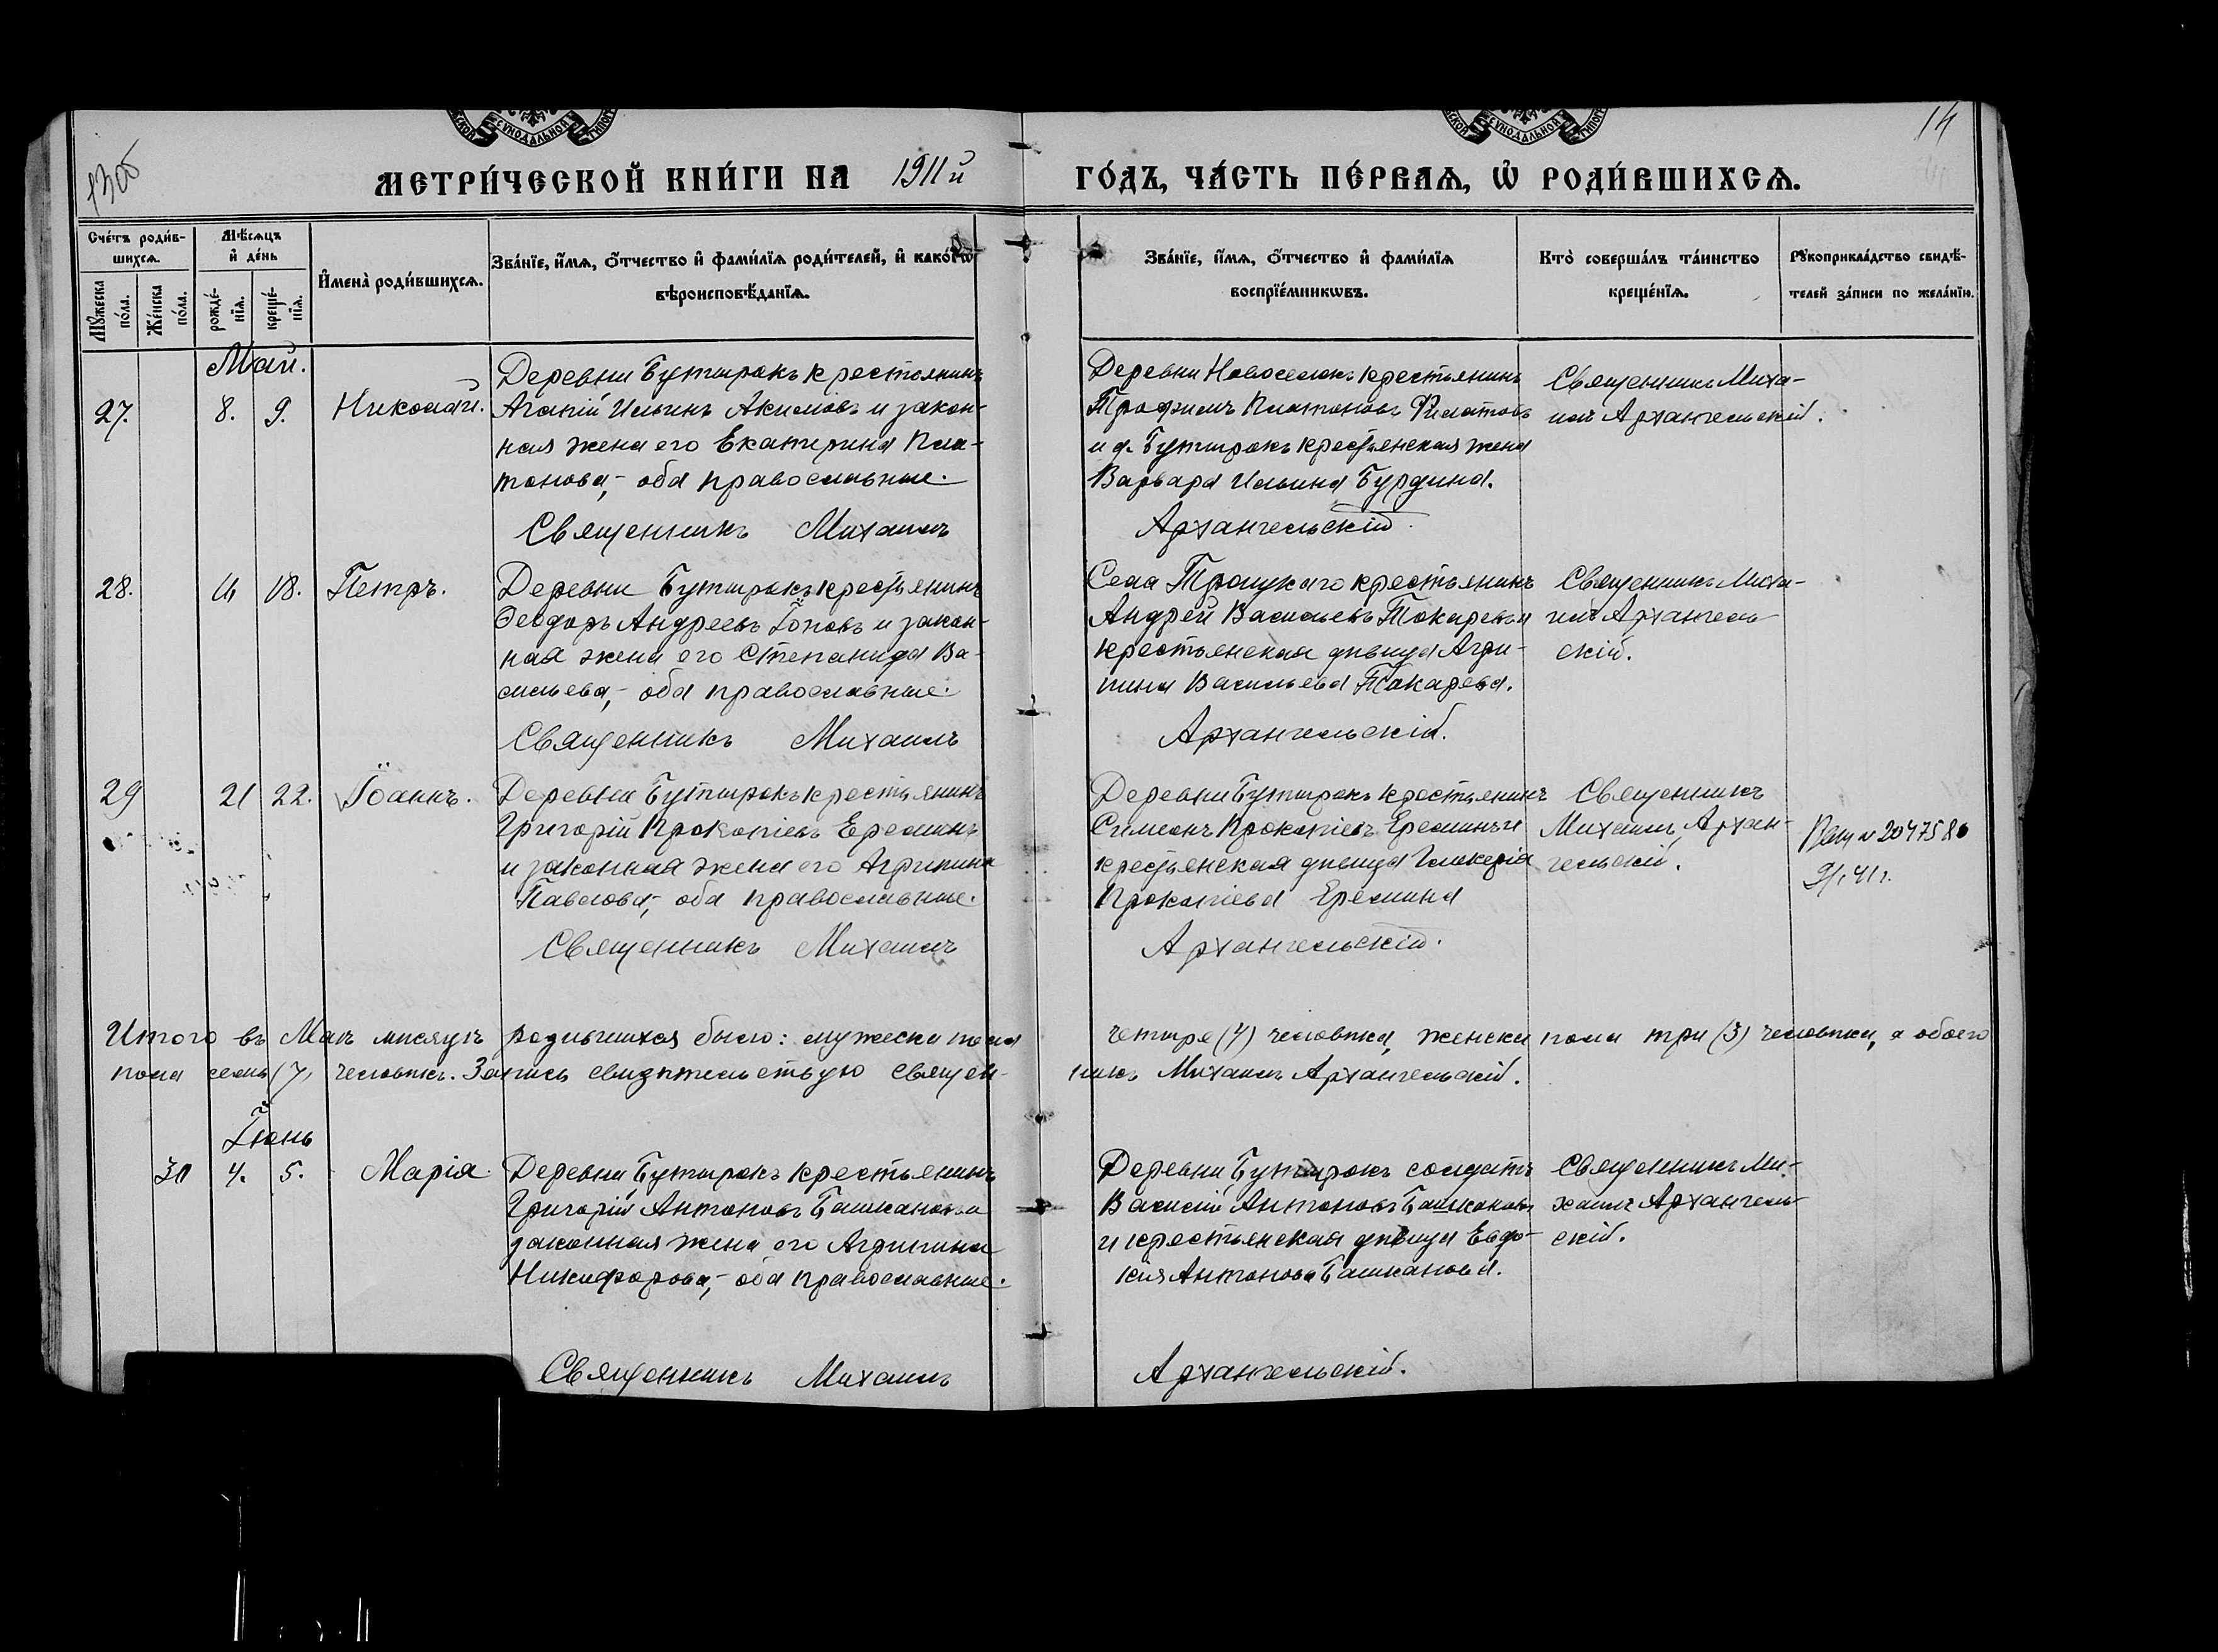 13об
14
СѴНОДАЛЬНОЙ
СѴНОДАЛЬНОЙ
МЕТРИ́ЧЕСКОЙ КНИ́ГИ НА 1911й
ГО́ДЪ, ЧА́СТЬ ПЕ́РВАѦ, Ѽ РОДИ́ВШИХСѦ.
Сче́тъ роди́в-
шихсѧ.
Мꙋ́жеска по́ла.
Же́нска по́ла.
Мѣ́сѧцъ
и҆ де́нь
рожде́-
нїѧ.
креще́-
нїѧ.
И҆мена̀ роди́вшихсѧ.
Зва́нїе, и҆́мѧ, ѻ҆́тчество и҆ фами́лїѧ роди́телей, и҆ како́гѡ
вѣроисповѣ́данїѧ.
Зва́нїе, и҆́мѧ, ѻ҆́тчество и҆ фами́лїѧ
воспрїе́мникѡвъ.
Кто̀ соверша́лъ та́инство
креще́нїѧ.
Рꙋкоприкла́дство свидѣ́-
телей за́писи по жела́нїю.
Май.
27. 8. 9. Николай.
Деревни Бутырокъ крестьянинъ
Агапій Ильинъ Акимовъ и закон-
ная жена его Екатерина Пла-
тонова,- оба православные.
Священникъ Михаилъ
Деревни Новоселокъ крестьянинъ
Трофимъ Платоновъ Филатовъ
и д. Бутырокъ крестьянская жена
Варвара Ильина Бурдина.
Архангельскій.
Священникъ Миха-
илъ Архангельскій.
28. 18. Петръ.
Деревни Бутырокъ крестьянинъ
Ѳеодоръ Андреевъ и закон-
ная жена его Степанида Ва-
сильева,- оба православные.
Священникъ Михаилъ
Села Троицкаго крестьянинъ
Андрей Васильевъ Токаревъ и
крестьянская дѣвица Агри-
пина Васильева Токарева.
Архангельскій.
Священникъ Миха-
илъ Архангель-
скій.
29 21 22. Іоаннъ.
Деревни Бутырокъ крестьянинъ
Григорій Прокопіевъ Ереминъ
и законная жена его Агрипина
Павлова,- оба православные.
Священникъ Михаилъ
Деревни Бутырокъ крестьянинъ
Симеонъ Прокопіевъ Ереминъ и
крестьянская дѣвица Гликерія
Прокопіева Еремина
Архангельскій.
Священникъ
Михаилъ Архан-
гельскій.
№ 2047580
9/I 41 г.
Итого въ Маѣ мѣсяцѣ родившихся было: мужеска пола четыре (4) человѣка, женска пола три (3) человѣка, а обоего
пола семь (7) человѣкъ. Запись свидѣтельствую священ-никъ Михаилъ Архангельскій.
Іюнь
30 4. 5. Марія.
Деревни Бутырокъ крестьянинъ
Григорій Антоновъ Башкановъ и
законная жена его Агрипина
Никифорова,- оба православные.
Священникъ Михаилъ
Деревни Бутырокъ солдатъ
Василій Антоновъ Башкановъ
и крестьянская дѣвица Евдо-
кія Антонова Башканова.
Архангельскій.
Священникъ Ми-
хаилъ Архангель-
скій.